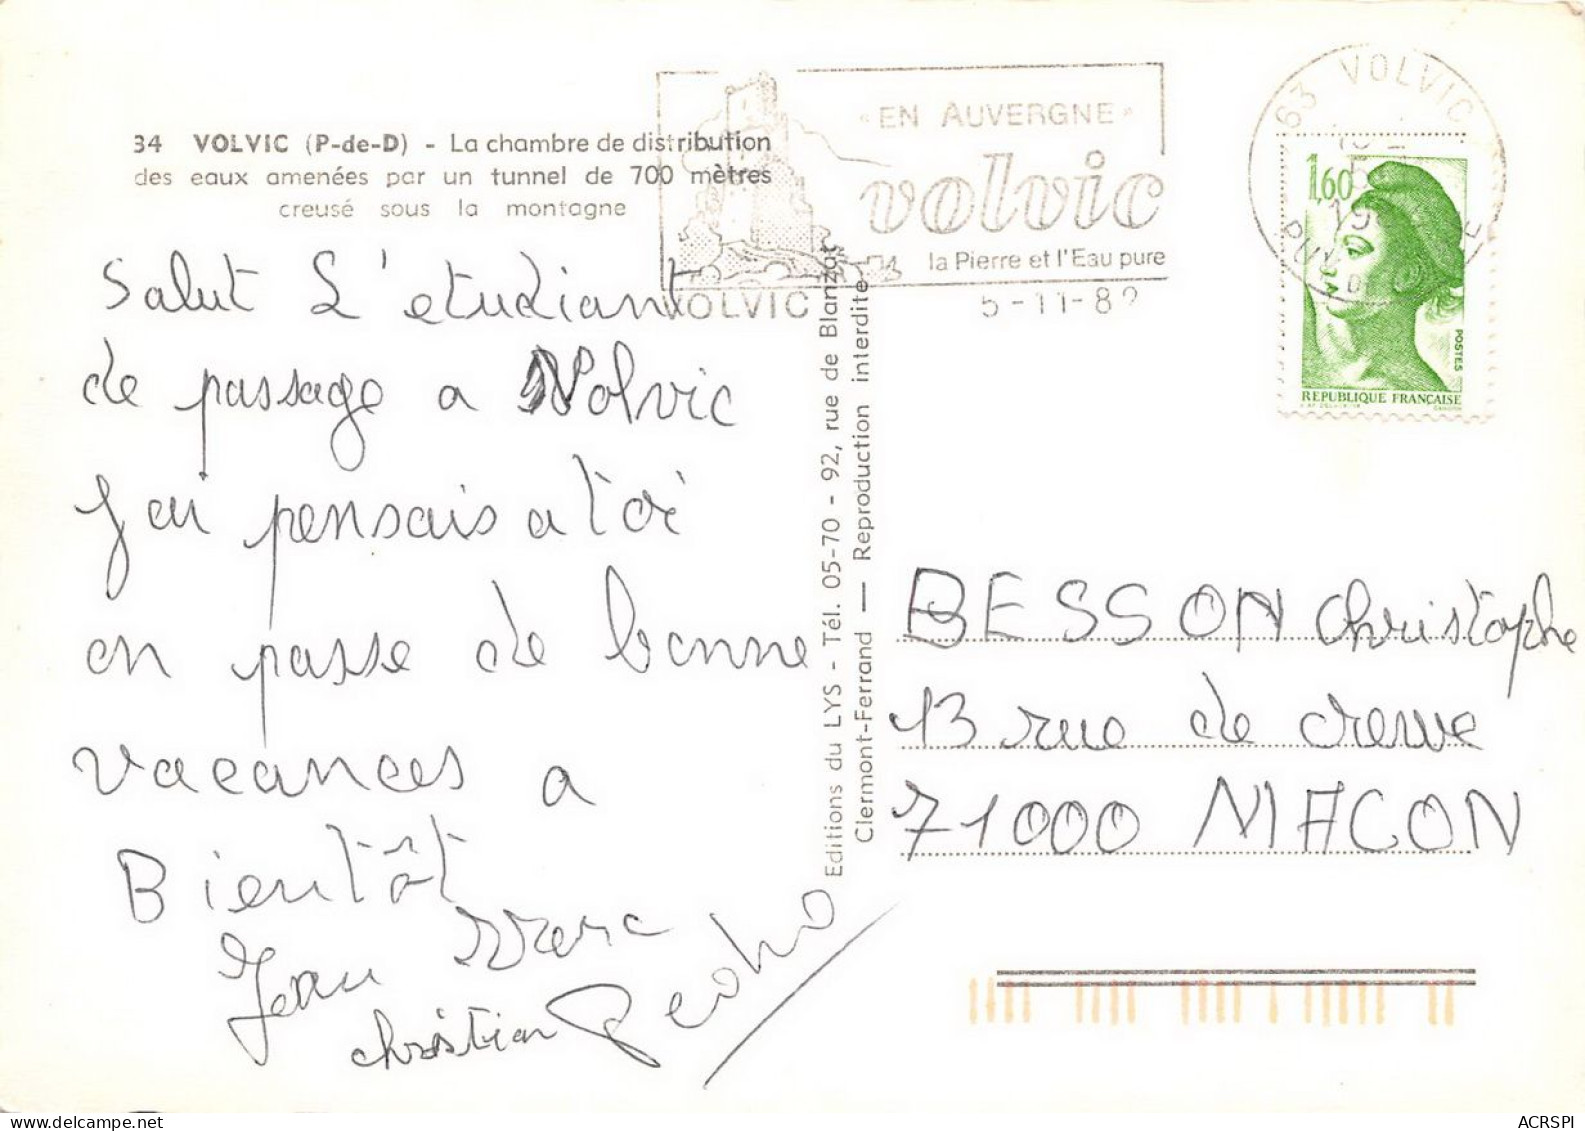 34 VOLVIC (P-de-D) - La chambre de distribution
des eaux amenées par un tunnel de 700 mètres
creusé sous la montagne
« EN AUVERGNE »
volvic
la Pierre et l'Eau pure
VOLVIC 5-11-82
63 VOLVIC
PUY DE
1,60
POSTES
REPUBLIQUE FRANÇAISE
Salut L'etudiant
de passage a Volvic
J'ai pensais a toi
on passe de bonne
vacances a
Bientôt
Jean Marc
christian Pedho
Editions du LYS - Tél. 05-70 - 92, rue de Blanzat
Clermont-Ferrand — Reproduction interdite
BESSON christophe
13 rue de creuve
71000 MACON
ACRSPI